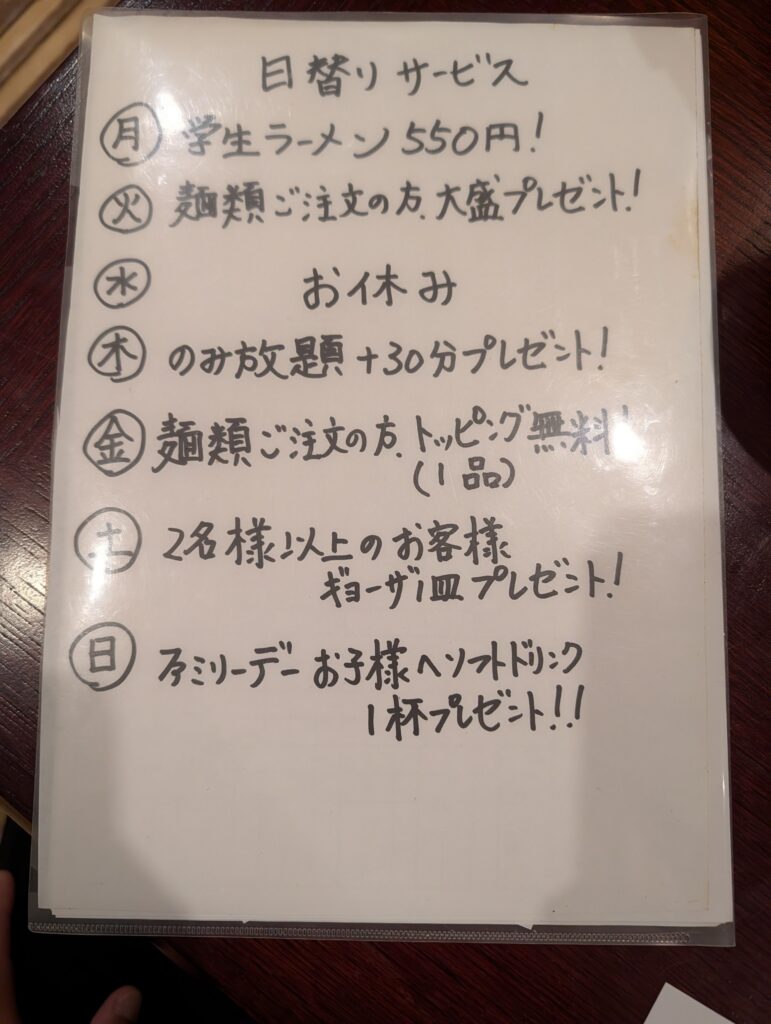 日替りサービス
月 学生ラーメン550円!
火 麺類ご注文の方、大盛プレゼント!
水 お休み
木 のみ放題+30分プレゼント!
金 麺類ご注文の方、トッピング無料!
(1品)
土 2名様以上のお客様
ギョーザ1皿プレゼント!
日 ファミリーデーお子様へソフトドリンク
1杯プレゼント!!